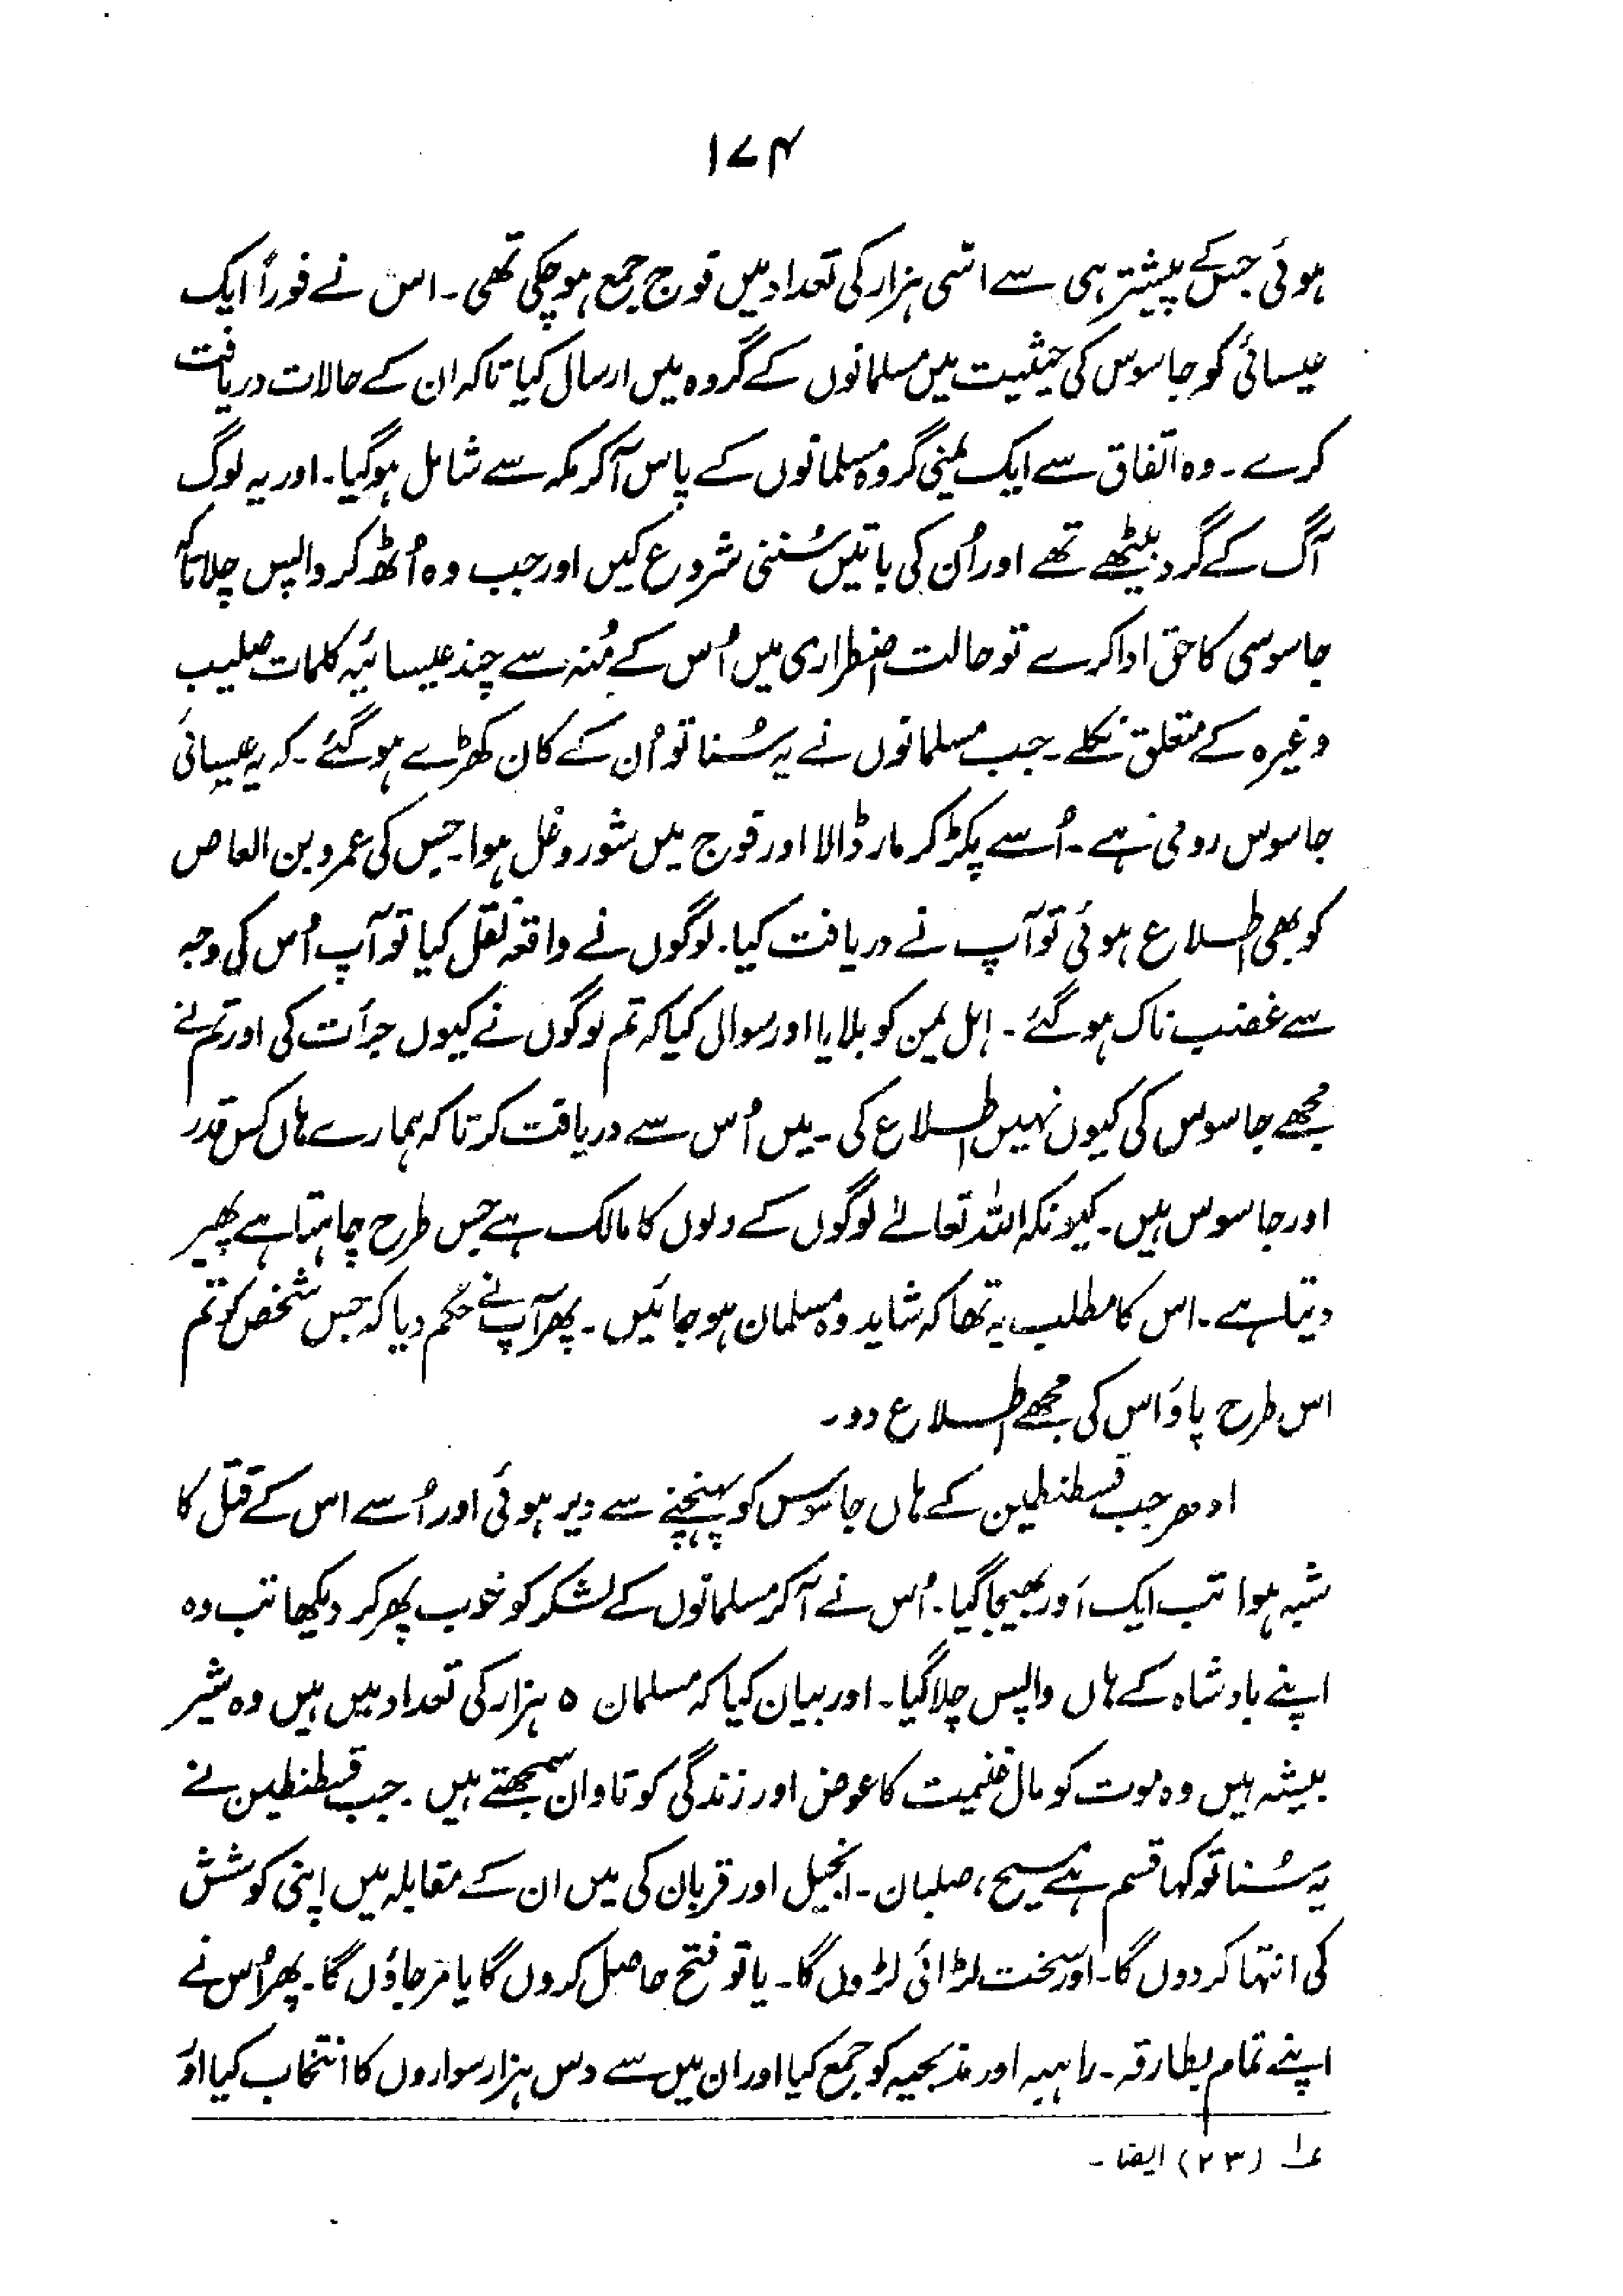 ۱۷۴
ہوئی جس کے پیشتر ہی سے اسّی ہزار کی تعداد میں فوج جمع ہو چکی تھی۔ اس نے فوراً ایک
عیسائی کو جاسوس کی حیثیت میں مسلمانوں کے گروہ میں ارسال کیا تاکہ ان کے حالات دریافت
کرے۔ وہ اتفاق سے ایک یمنی گروہ مسلمانوں کے پاس آکر مکہ سے شامل ہوگیا۔ اور یہ لوگ
آگ کے گرد بیٹھے تھے اور اُن کی باتیں سُننی شروع کیں اور جب وہ اُٹھ کر واپس چلا تاکہ
جاسوسی کا حق ادا کرے تو حالت اضطراری میں اُس کے مُنہ سے چند عیسائیہ کلمات صلیب
وغیرہ کے متعلق نکلے۔ جب مسلمانوں نے یہ سُنا تو اُن کے کان کھڑے ہوگئے۔ کہ یہ عیسائی
جاسوس رومی ہے۔ اُسے پکڑ کر مار ڈالا اور فوج میں شور و غل ہوا۔ جس کی عمرو بن العاص
کو بھی اطلاع ہوئی تو آپ نے دریافت کیا۔ لوگوں نے واقعہ نقل کیا تو آپ اُس کی وجہ
سے غضب ناک ہوگئے۔ اہل یمن کو بلایا اور سوال کیا کہ تم لوگوں نے کیوں جرأت کی اور تم نے
مجھے جاسوس کی کیوں نہیں اطلاع کی۔ میں اُس سے دریافت کرتا کہ ہمارے ہاں کس قدر
اور جاسوس ہیں۔ کیونکہ اللہ تعالےٰ لوگوں کے دلوں کا مالک ہے جس طرح چاہتا ہے پھیر
دیتا ہے۔ اس کا مطلب یہ تھا کہ شاید وہ مسلمان ہو جائیں۔ پھر آپ نے حکم دیا کہ جس شخص کو تم
اس طرح پاؤ اس کی مجھے اطلاع دو۔
ادھر جب قسطنطین کے ہاں جاسوس کو پہنچنے سے دیر ہوئی اور اُسے اس کے قتل کا
شبہ ہوا تب ایک اَور بھیجا گیا۔ اُس نے آکر مسلمانوں کے لشکر کو خوب پھر کر دیکھا تب وہ
اپنے بادشاہ کے ہاں واپس چلا گیا۔ اور بیان کیا کہ مسلمان ۵ ہزار کی تعداد میں ہیں وہ شیر
بیشہ ہیں وہ موت کو مال غنیمت کا عوض اور زندگی کو تاوان سمجھتے ہیں۔ جب قسطنطین نے
یہ سُنا تو کہا قسم ہے مسیح، صلبان۔ انجیل اور قربان کی میں ان کے مقابلہ میں اپنی کوشش
کی انتہا کر دوں گا۔ اور سخت لڑائی لڑوں گا۔ یا تو فتح حاصل کروں گا یا مر جاؤں گا۔ پھر اُس نے
اپنے تمام بطارقہ۔ راہبہ اور مذبحیہ کو جمع کیا اور ان میں سے دس ہزار سواروں کا انتخاب کیا اور
؏۱ (۲۳) ایضا۔